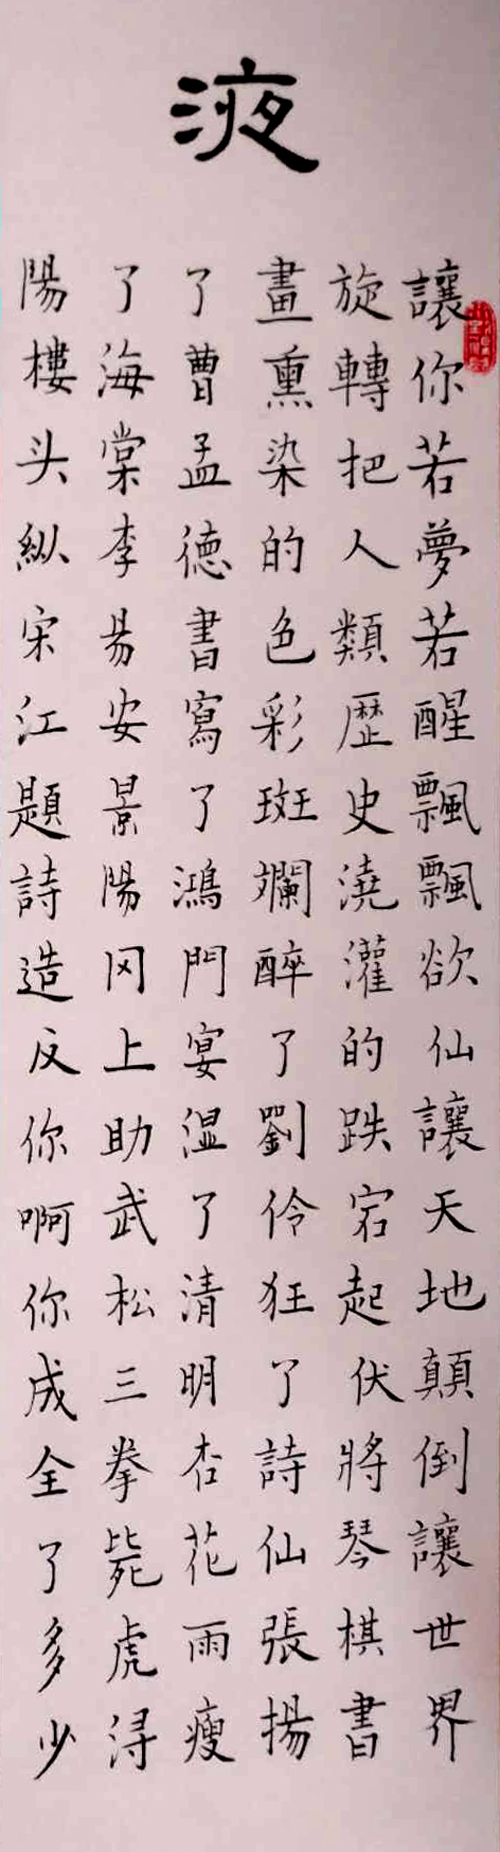 液
讓你若夢若醒飄飄欲仙讓天地顛倒讓世界
旋轉把人類歷史澆灌的跌宕起伏將琴棋書
畫熏染的色彩斑斕醉了劉伶狂了詩仙張揚
了曹孟德書寫了鴻門宴温了清明杏花雨瘦
了海棠李易安景陽冈上助武松三拳毙虎浔
陽樓头縱宋江題詩造反你啊你成全了多少